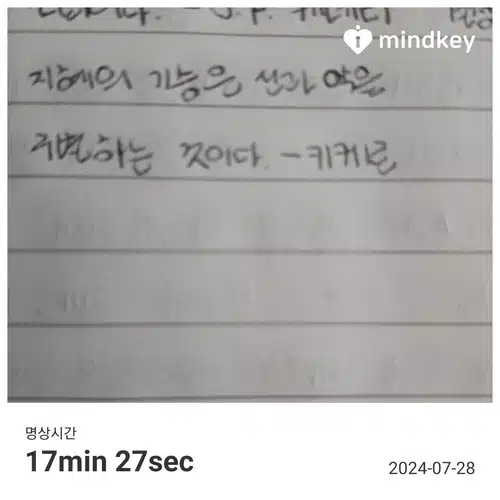 mindkey
지혜의 기능은 선과 악을
구별하는 것이다. - 키케로
명상시간
17min 27sec
2024-07-28